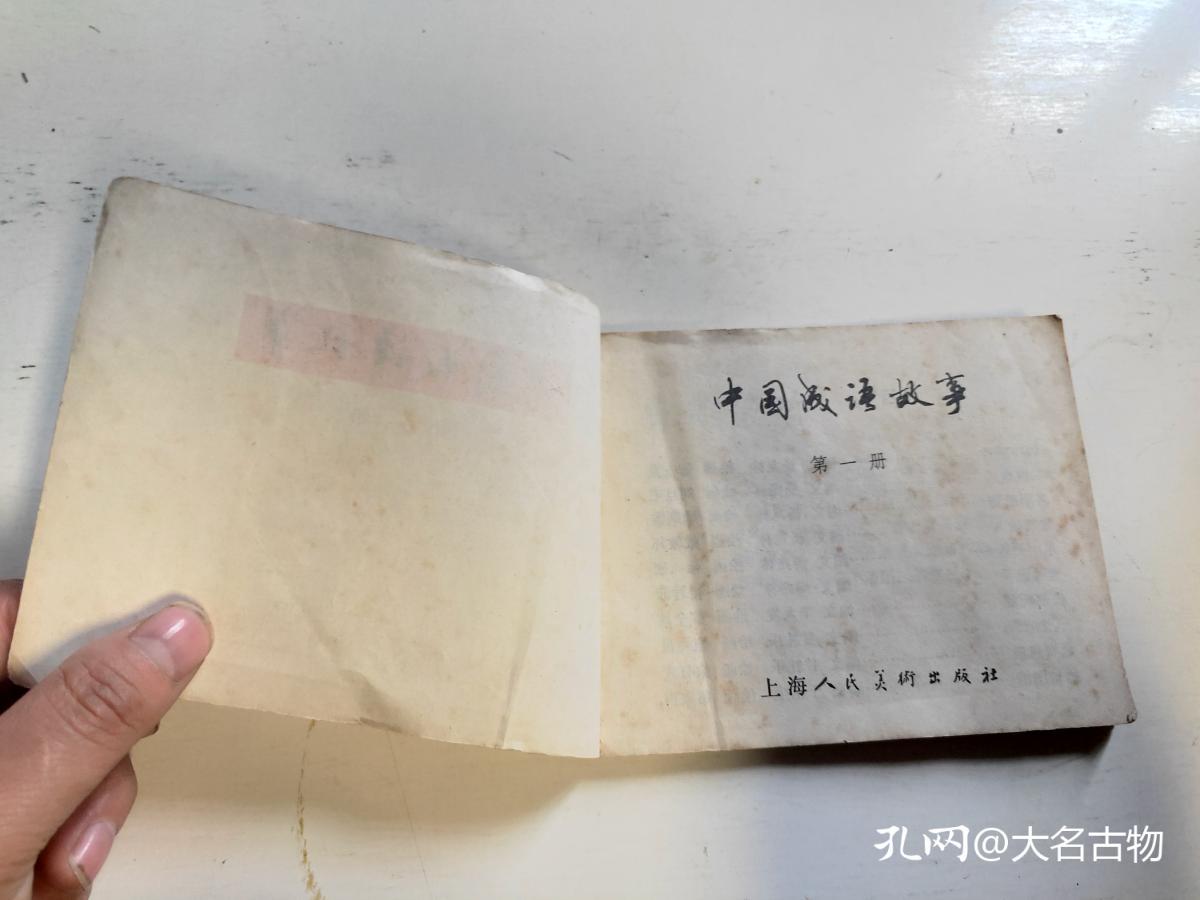 中国成语故事
第一册
上海人民美術出版社
孔网@大名古物